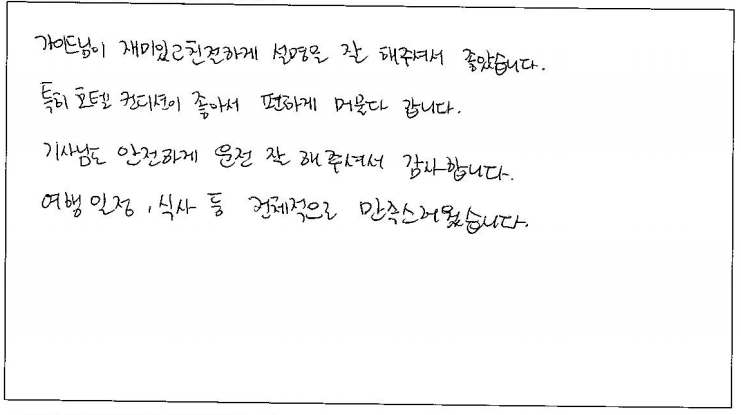 가이드님이 재미있고 친절하게 설명을 잘 해주셔서 좋았습니다.
특히 호텔 컨디션이 좋아서 편하게 머물다 갑니다.
기사님도 안전하게 운전 잘 해주셔서 감사합니다.
여행 일정, 식사 등 전체적으로 만족스러웠습니다.